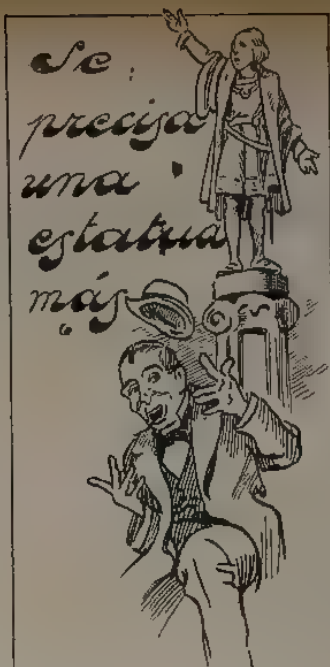 Se
precisa
una
estatua
más